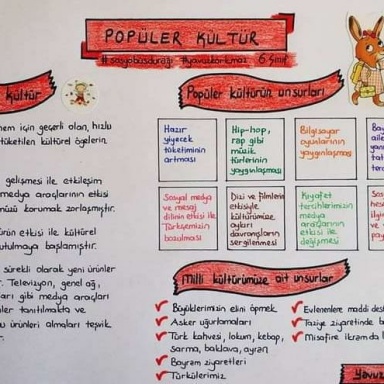 POPÜLER KÜLTÜR
6. Sınıf
kültür
nem için geçerli olan, hızlı
tüketilen kültürel ögelerin
gelişmesi ile etkileşim
medya araçlarının etkisi
müzü korumak zorlaşmıştır.
ürün etkisi ile kültürel
utulmaya başlamıştır.
sürekli olarak yeni ürünler
Televizyon, genel ağ,
ları gibi medya araçları
nler tanıtılmakta ve
u ürünleri almaları teşvik
Popüler kültürün unsurları
Hazır
yiyecek
tüketiminin
artması
Hip-hop,
rap gibi
müzik
türlerinin
yaygınlaşması
Bilgisayar
oyunlarının
yaygınlaşması
Sosyal medya
ve mesaj
dilinin etkisi ile
Türkçemizin
bozulması
Dizi ve filmlerin
etkisiyle
kültürümüze
aykırı
davranışların
sergilenmesi
Kıyafet
tercihlerimizin
medya
araçlarının
etkisi ile
değişmesi
Milli kültürümüze ait unsurlar
Büyüklerimizin elini öpmek
Asker uğurlamaları
Türk kahvesi, lokum, kebap,
sarma, baklava, ayran
Bayram ziyaretleri
Türkülerimiz
Evlenenlere maddi dest
Taziye ziyaretinde b
Misafire ikramda
Yavuz